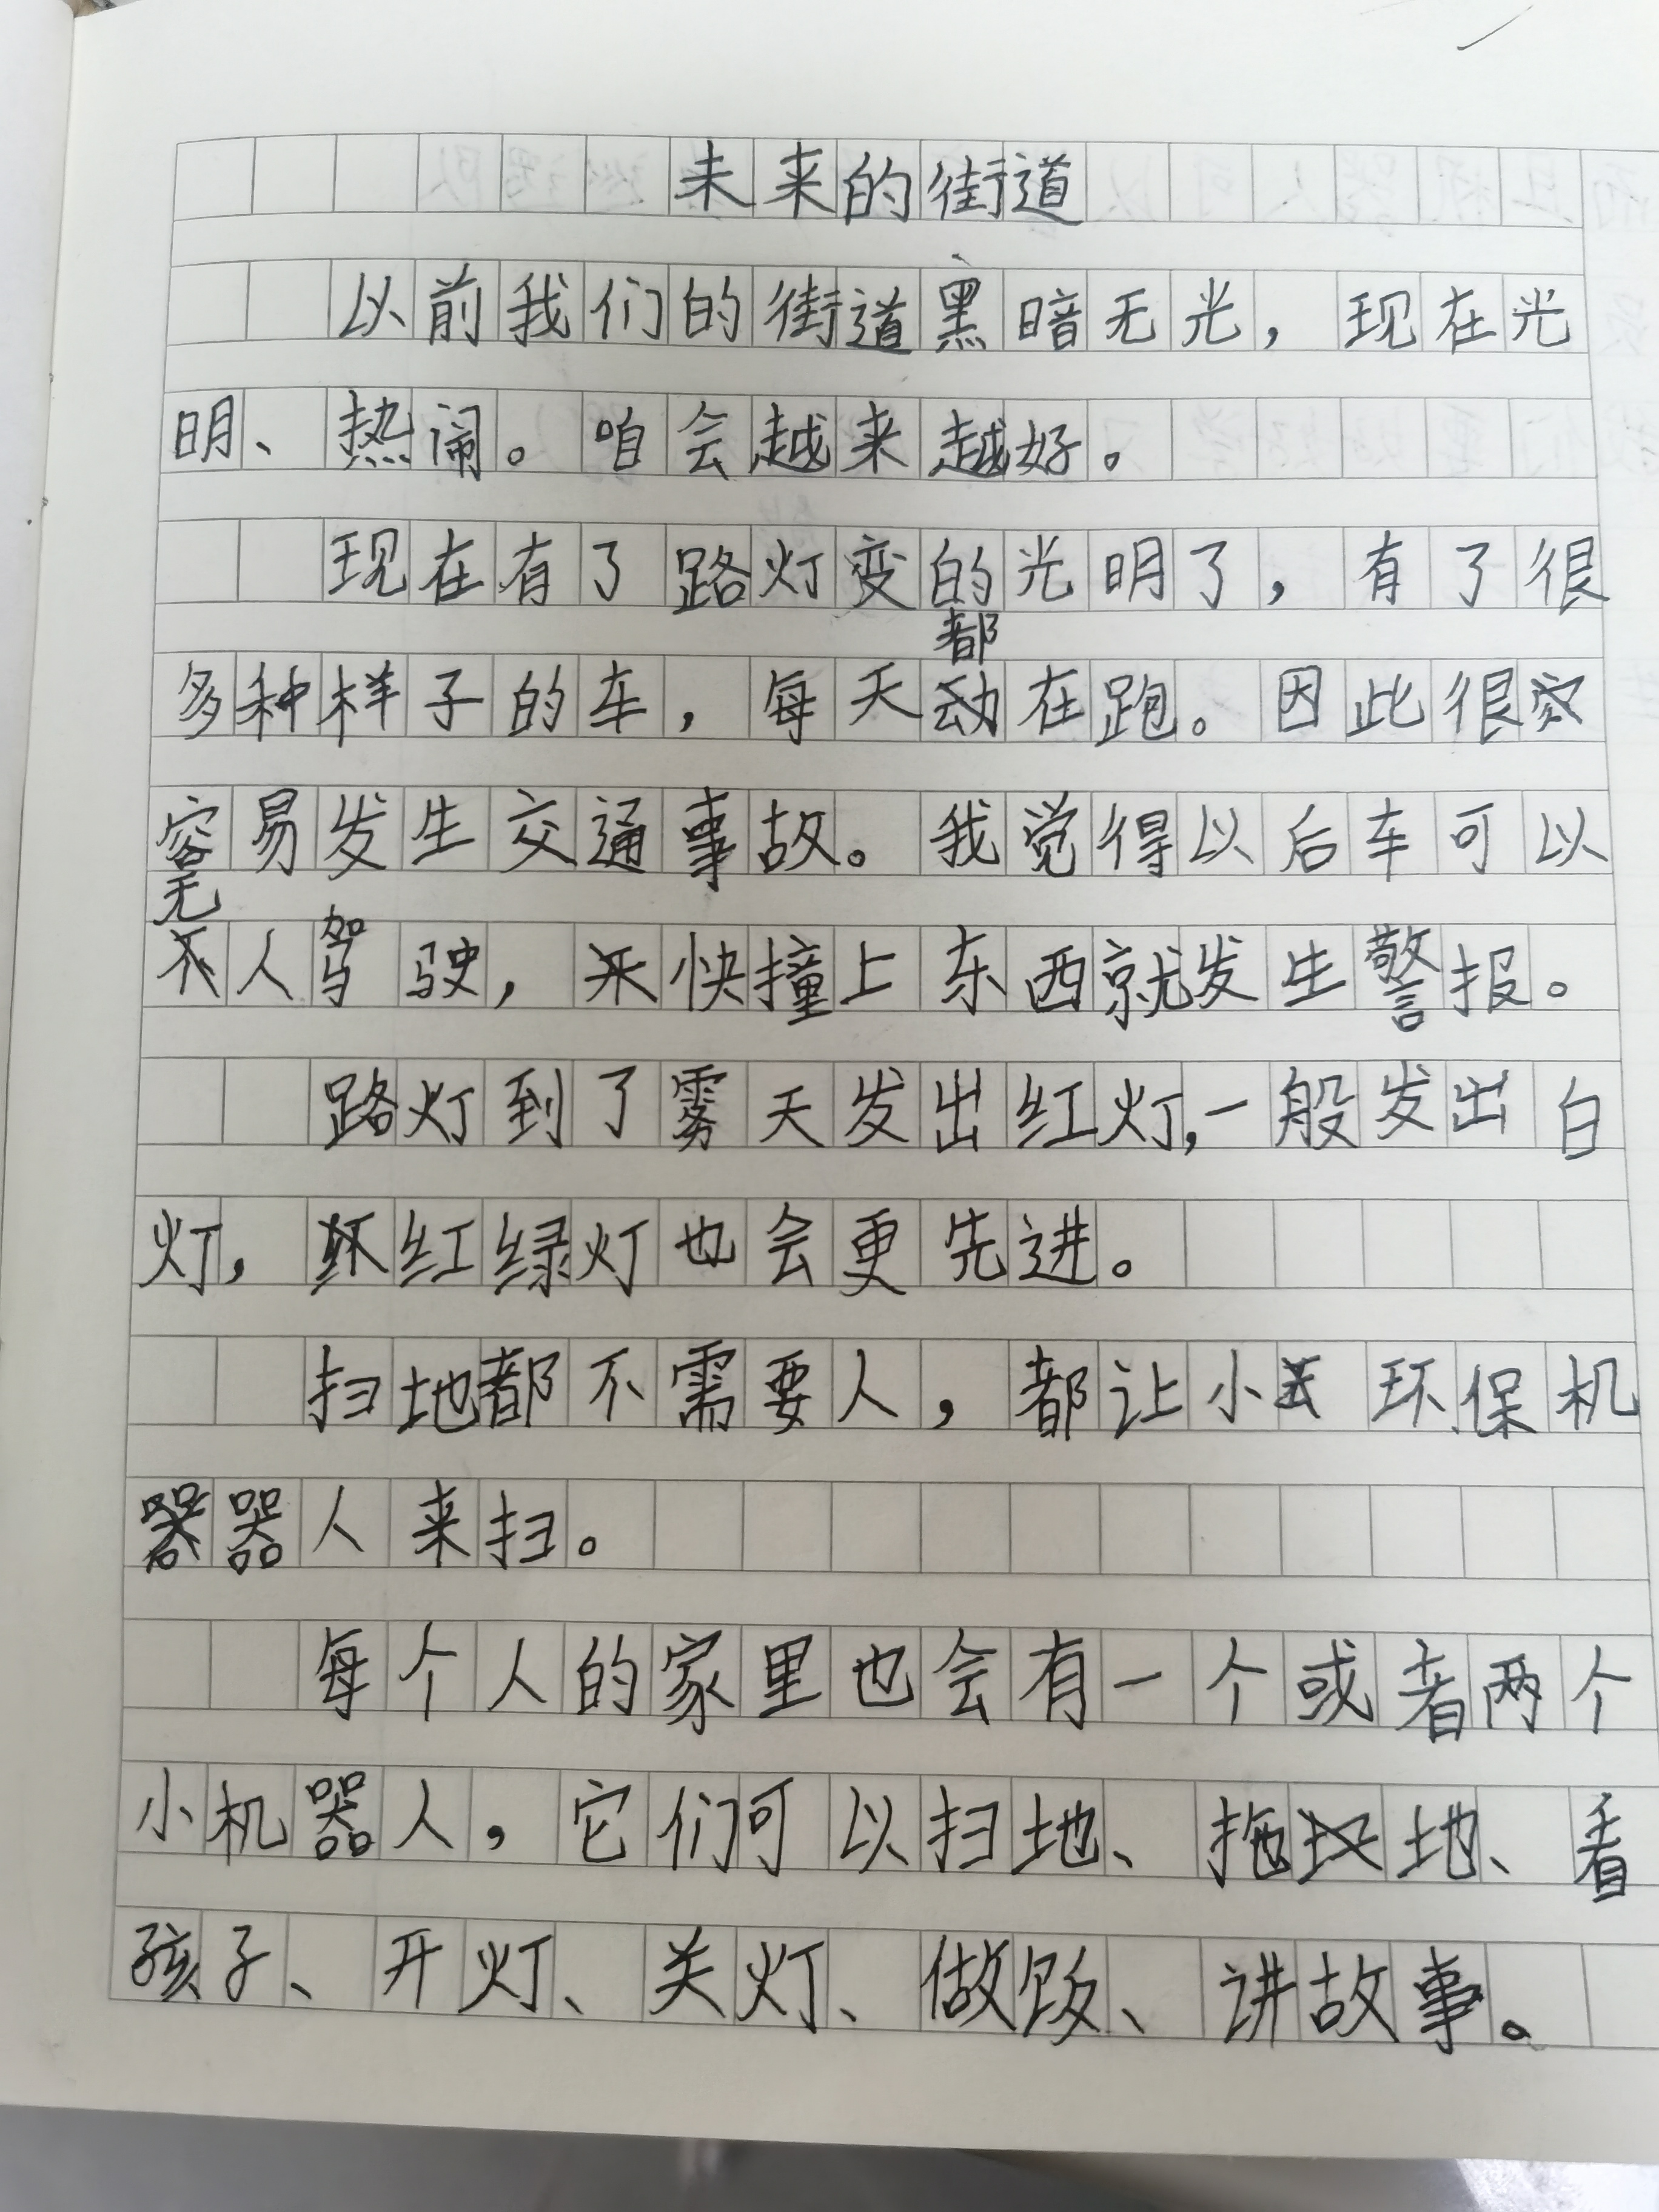 未来的街道
以前我们的街道黑暗无光，现在光
明、热闹。咱会越来越好。
现在有了路灯变的光明了，有了很
多种样子的车，每天都在跑。因此很
容易发生交通事故。我觉得以后车可以
无人驾驶，快撞上东西就发生警报。
路灯到了雾天发出红灯，一般发出白
灯，红绿灯也会更先进。
扫地都不需要人，都让小环保机
器人来扫。
每个人的家里也会有一个或者两个
小机器人，它们可以扫地、拖地、看
孩子、开灯、关灯、做饭、讲故事。